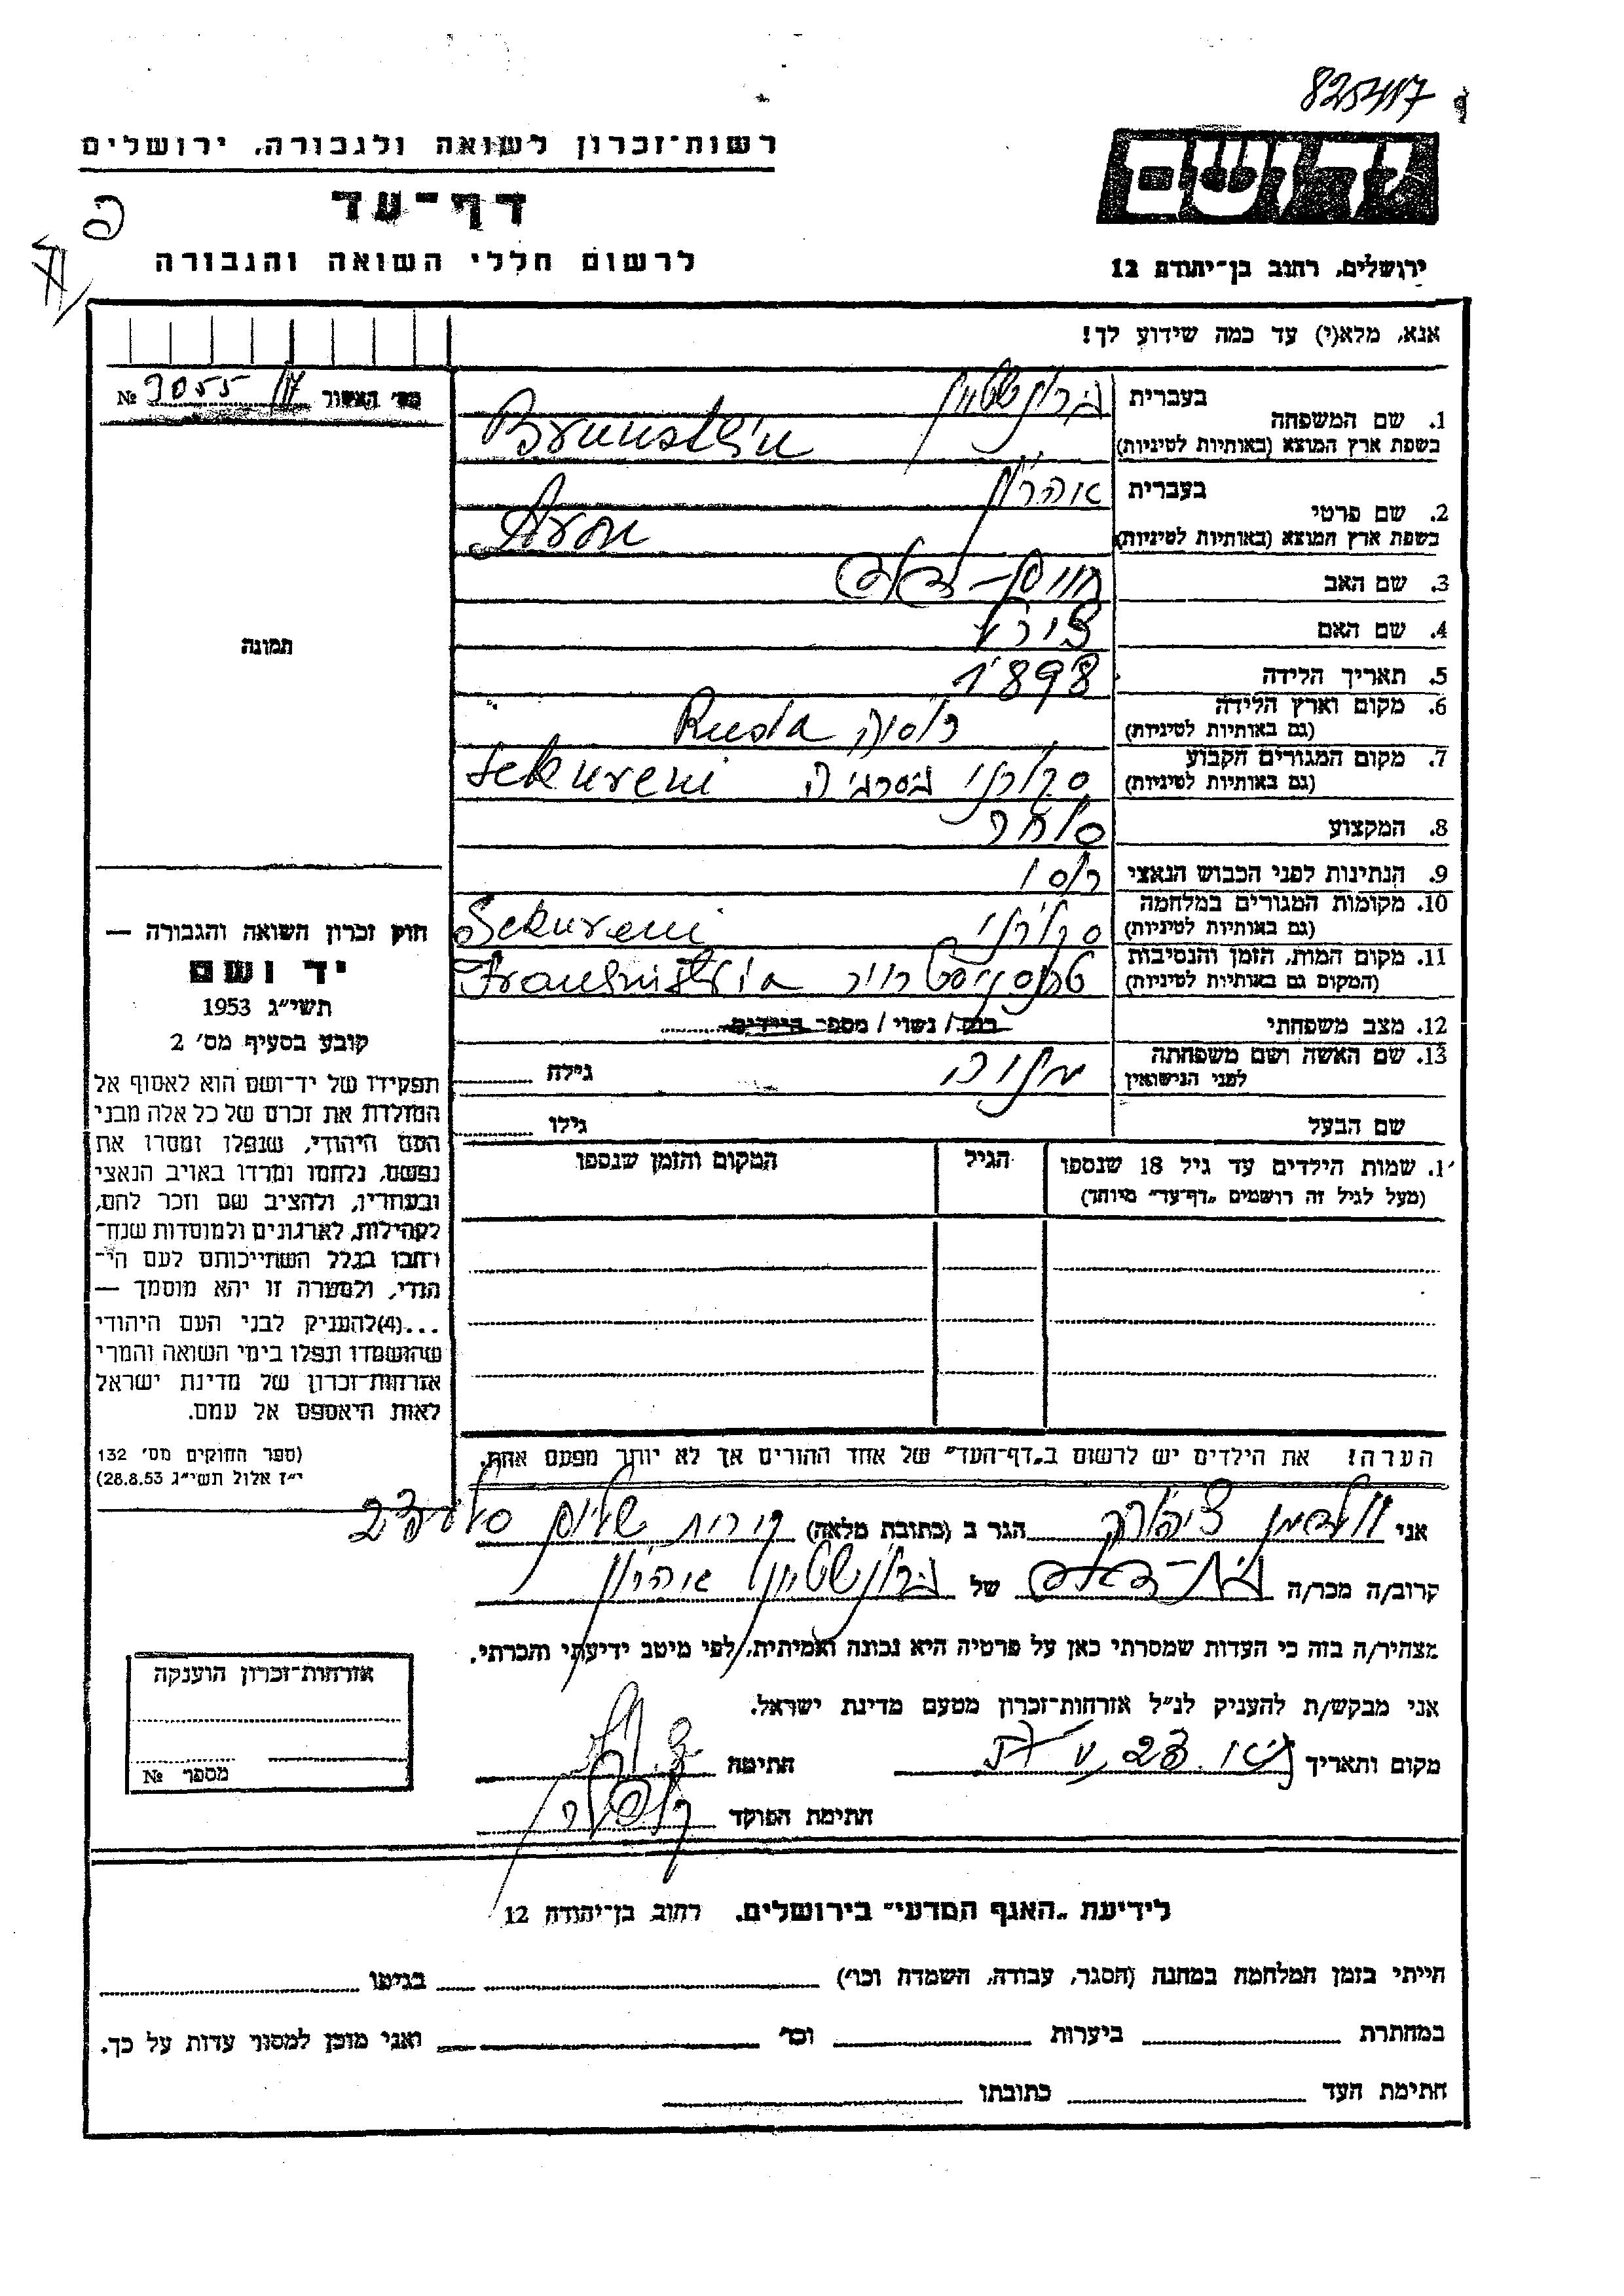 825417
רשות־זכרון לשואה ולגבורה, ירושלים
דף־עד
לרשום חללי השואה והגבורה
ירושלים, רחוב בן־יהודה 12
אנא, מלא(י) עד כמה שידוע לך!
מס׳ האשור № 3055/17
1. שם המשפחה בעברית ברונשטיין
בשפת ארץ המוצא (באותיות לטיניות) Brunstein
2. שם פרטי בעברית אהרון
בשפת ארץ המוצא (באותיות לטיניות) Aron
3. שם האב
4. שם האם
5. תאריך הלידה 1898
6. מקום וארץ הלידה (גם באותיות לטיניות) רוסיה Rusia
7. מקום המגורים הקבוע (גם באותיות לטיניות) סקורני בסרביה Sekureni
8. המקצוע סוחר
9. הנתינות לפני הכבוש הנאצי רוסי
10. מקומות המגורים במלחמה (גם באותיות לטיניות) סקורני Sekureni
11. מקום המות, הזמן והנסיבות (המקום גם באותיות לטיניות) טרנסניסטריה Transnistria
12. מצב משפחתי רווק / נשוי / מספר הילדים
13. שם האשה ושם משפחתה לפני הנישואין גילה
שם הבעל גילו
שמות הילדים עד גיל 18 שנספו הגיל המקום והזמן שנספו
(מעל לגיל זה רושמים „דף־עד״ מיוחד)
הערה! את הילדים יש לרשום ב„דף־העד״ של אחד ההורים אך לא יותר מפעם אחת.
תמונה
חוק זכרון השואה והגבורה —
יד ושם
תשי״ג 1953
קובע בסעיף מס׳ 2
תפקידו של יד־ושם הוא לאסוף אל
המולדת את זכרם של כל אלה מבני
העם היהודי, שנפלו ומסרו את
נפשם, נלחמו ומרדו באויב הנאצי
ובעוזריו, ולהציב שם וזכר להם,
לקהילות, לארגונים ולמוסדות שנח־
רבו בגלל השתייכותם לעם הי־
הודי, ולמטרה זו יהא מוסמך —
...(4)להעניק לבני העם היהודי
שהושמדו ונפלו בימי השואה והמרי
אזרחות־זכרון של מדינת ישראל
לאות היאספם אל עמם.
(ספר החוקים מס׳ 132
י״ז אלול תשי״ג 28.8.53)
אני ולדמן הגר ב (כתובת מלאה) קרית שלום
קרוב/ה מכר/ה בת־דודו של ברונשטיין אהרון
מצהיר/ה בזה כי העדות שמסרתי כאן על פרטיה היא נכונה ואמיתית, לפי מיטב ידיעתי והכרתי.
אני מבקש/ת להעניק לנ״ל אזרחות־זכרון מטעם מדינת ישראל.
מקום ותאריך חתימה
חתימת הפוקד
אזרחות־זכרון הוענקה
מספר №
לידיעת „האגף המדעי״ בירושלים, רחוב בן־יהודה 12
הייתי בזמן המלחמה במחנה (הסגר, עבודה, השמדה וכו׳) בגיטו
במחתרת ביערות וכו׳ ואני מוכן למסור עדות על כך.
חתימת העד כתובתו